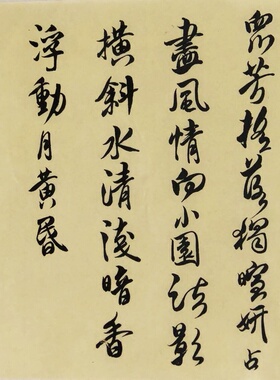 众芳摇落獨暄妍占
盡風情向小園疏影
横斜水清淺暗香
浮動月黄昏